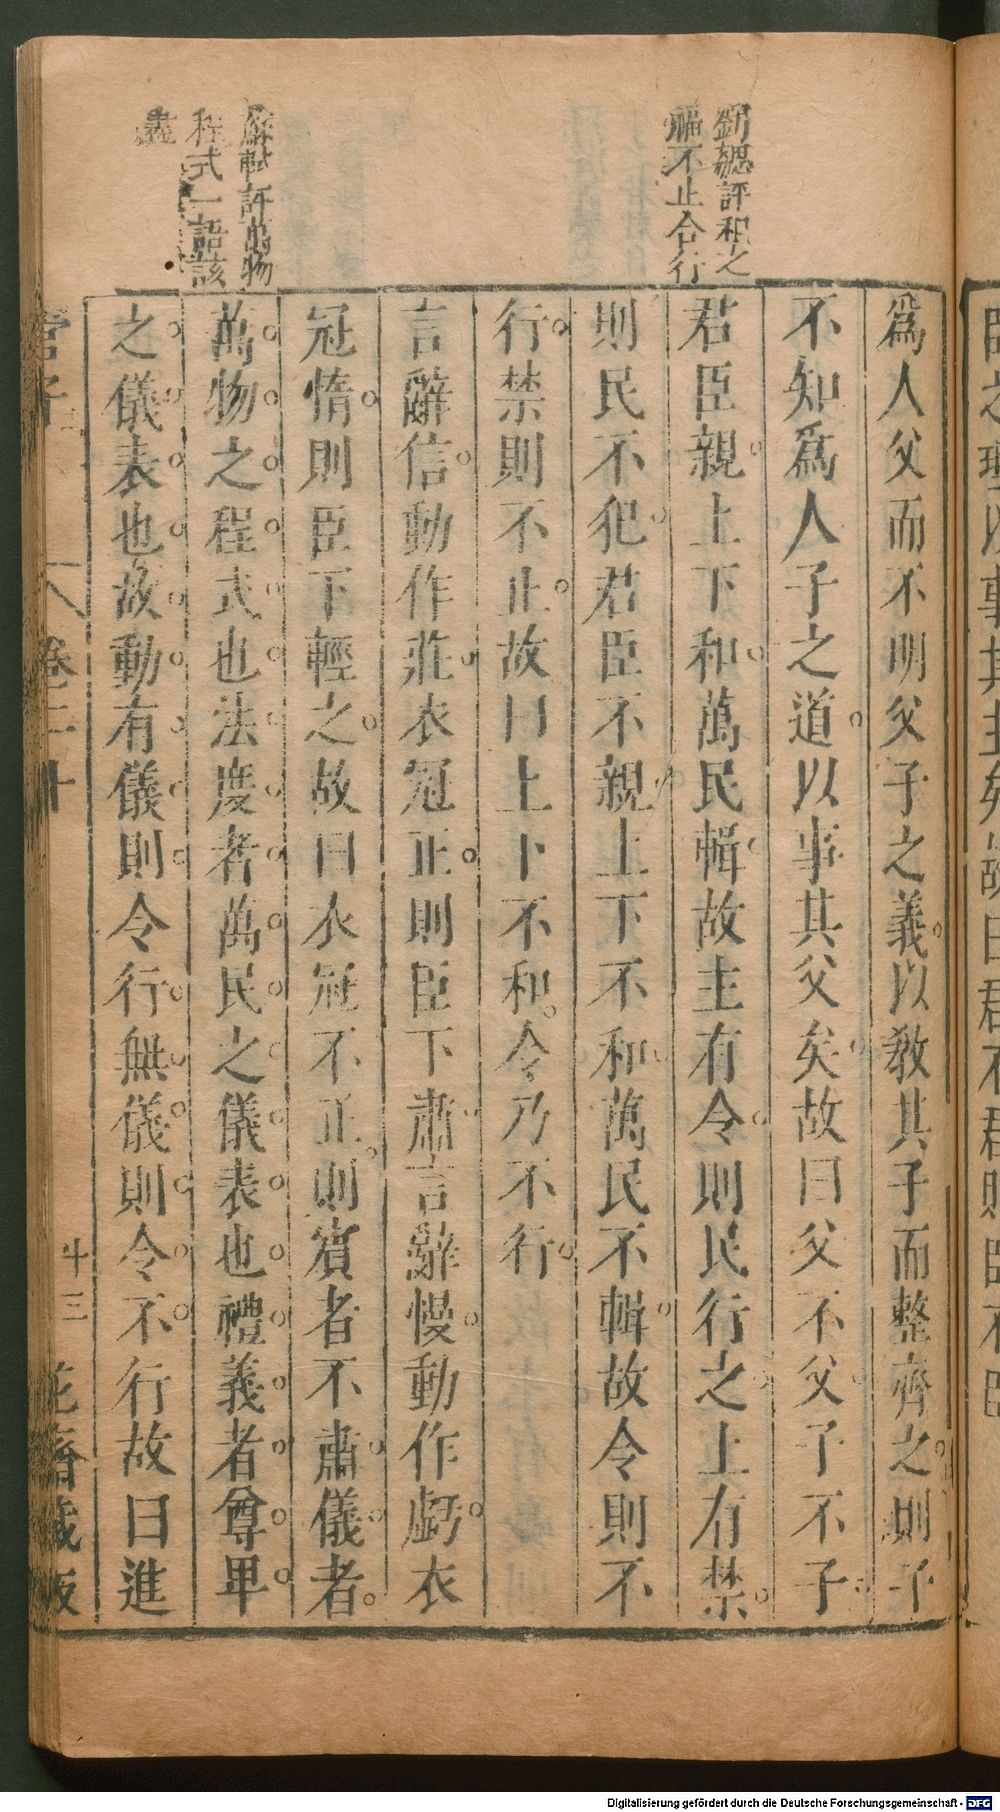 劉勰評和之
福不止令行
蘇軾評萬物
程式一語該
盡
爲人父而不明父子之義以教其子而整齊之則子
不知爲人子之道以事其父矣故曰父不父子不子
君臣親上下和萬民輯故主有令則民行之上有禁
則民不犯君臣不親上下不和萬民不輯故令則不
行禁則不止故曰上下不和令乃不行
言辭信動作莊衣冠正則臣下肅言辭慢動作虧衣
冠惰則臣下輕之故曰衣冠不正則賓者不肅儀者
萬物之程式也法度者萬民之儀表也禮義者尊卑
之儀表也故動有儀則令行無儀則令不行故曰進
管子 卷二十 十三 花齋藏板
Digitalisierung gefördert durch die Deutsche Forschungsgemeinschaft - DFG